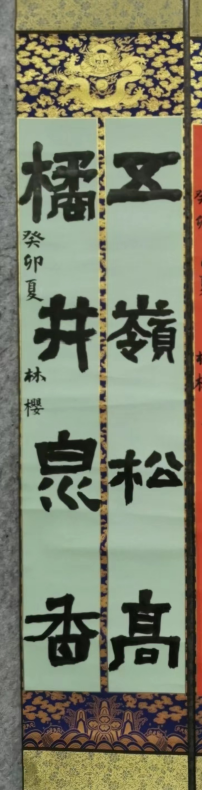 五嶺松高
橘井泉香
癸卯夏 林櫻